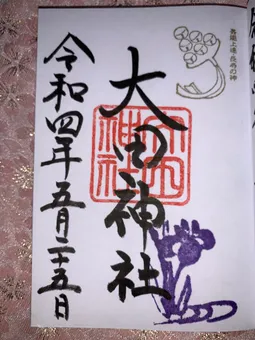 大田神社
令和四年五月二十五日